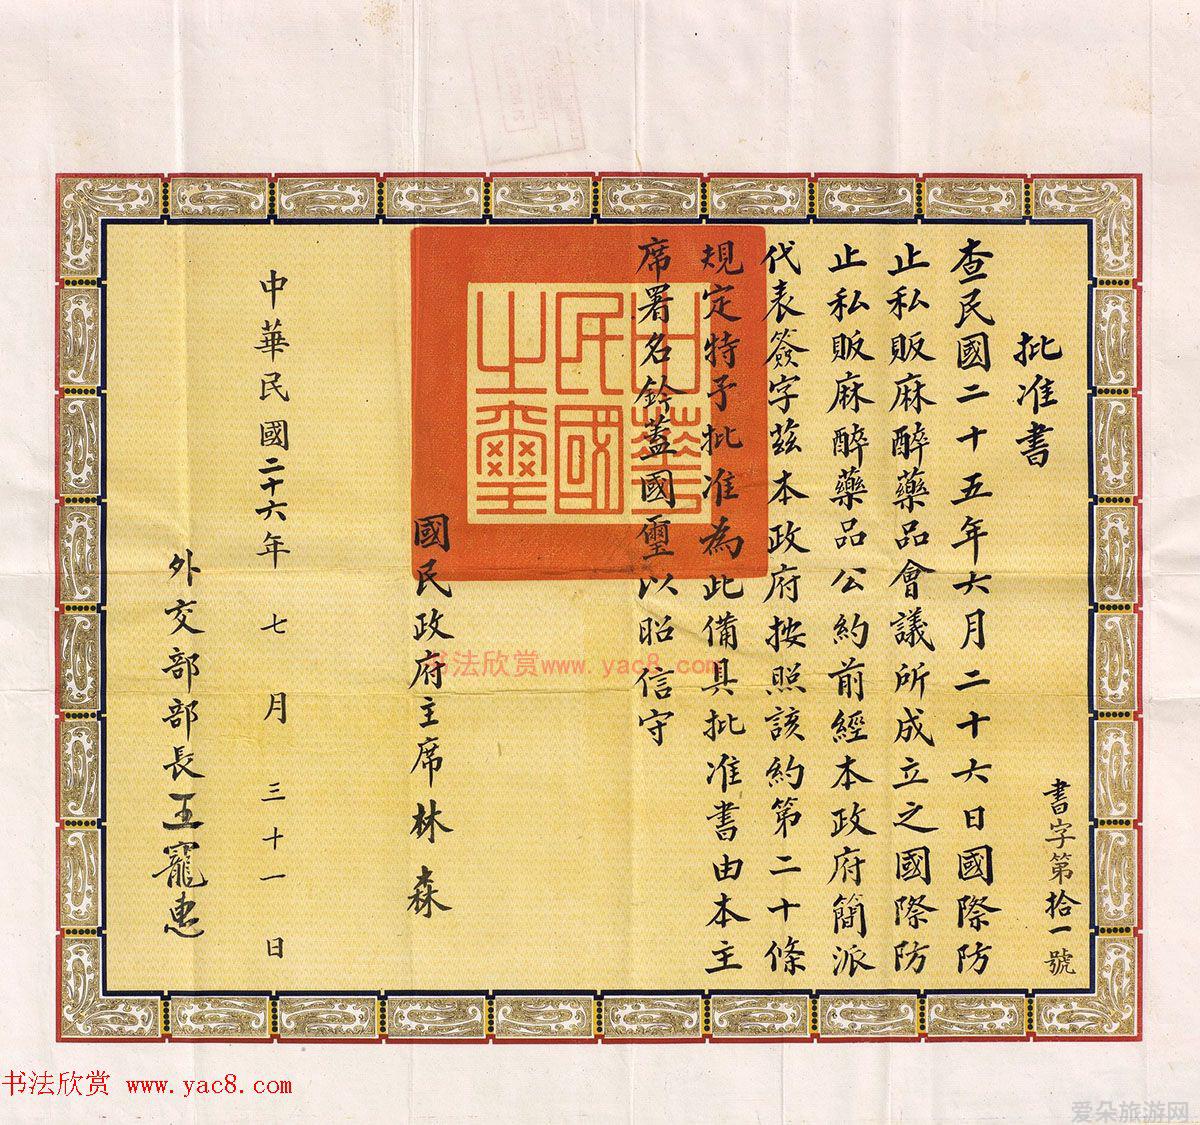 書字第拾一號
批准書
查民國二十五年六月二十六日國際防
止私販麻醉藥品會議所成立之國際防
止私販麻醉藥品公約前經本政府簡派
代表簽字茲本政府按照該約第二十條
規定特予批准為此備具批准書由本主
席署名鈐蓋國璽以昭信守
中華民國之璽
國民政府主席林森
中華民國二十六年七月三十一日
外交部部長王寵惠
书法欣赏www.yac8.com
书法欣赏 www.yac8.com
爱朵旅游网